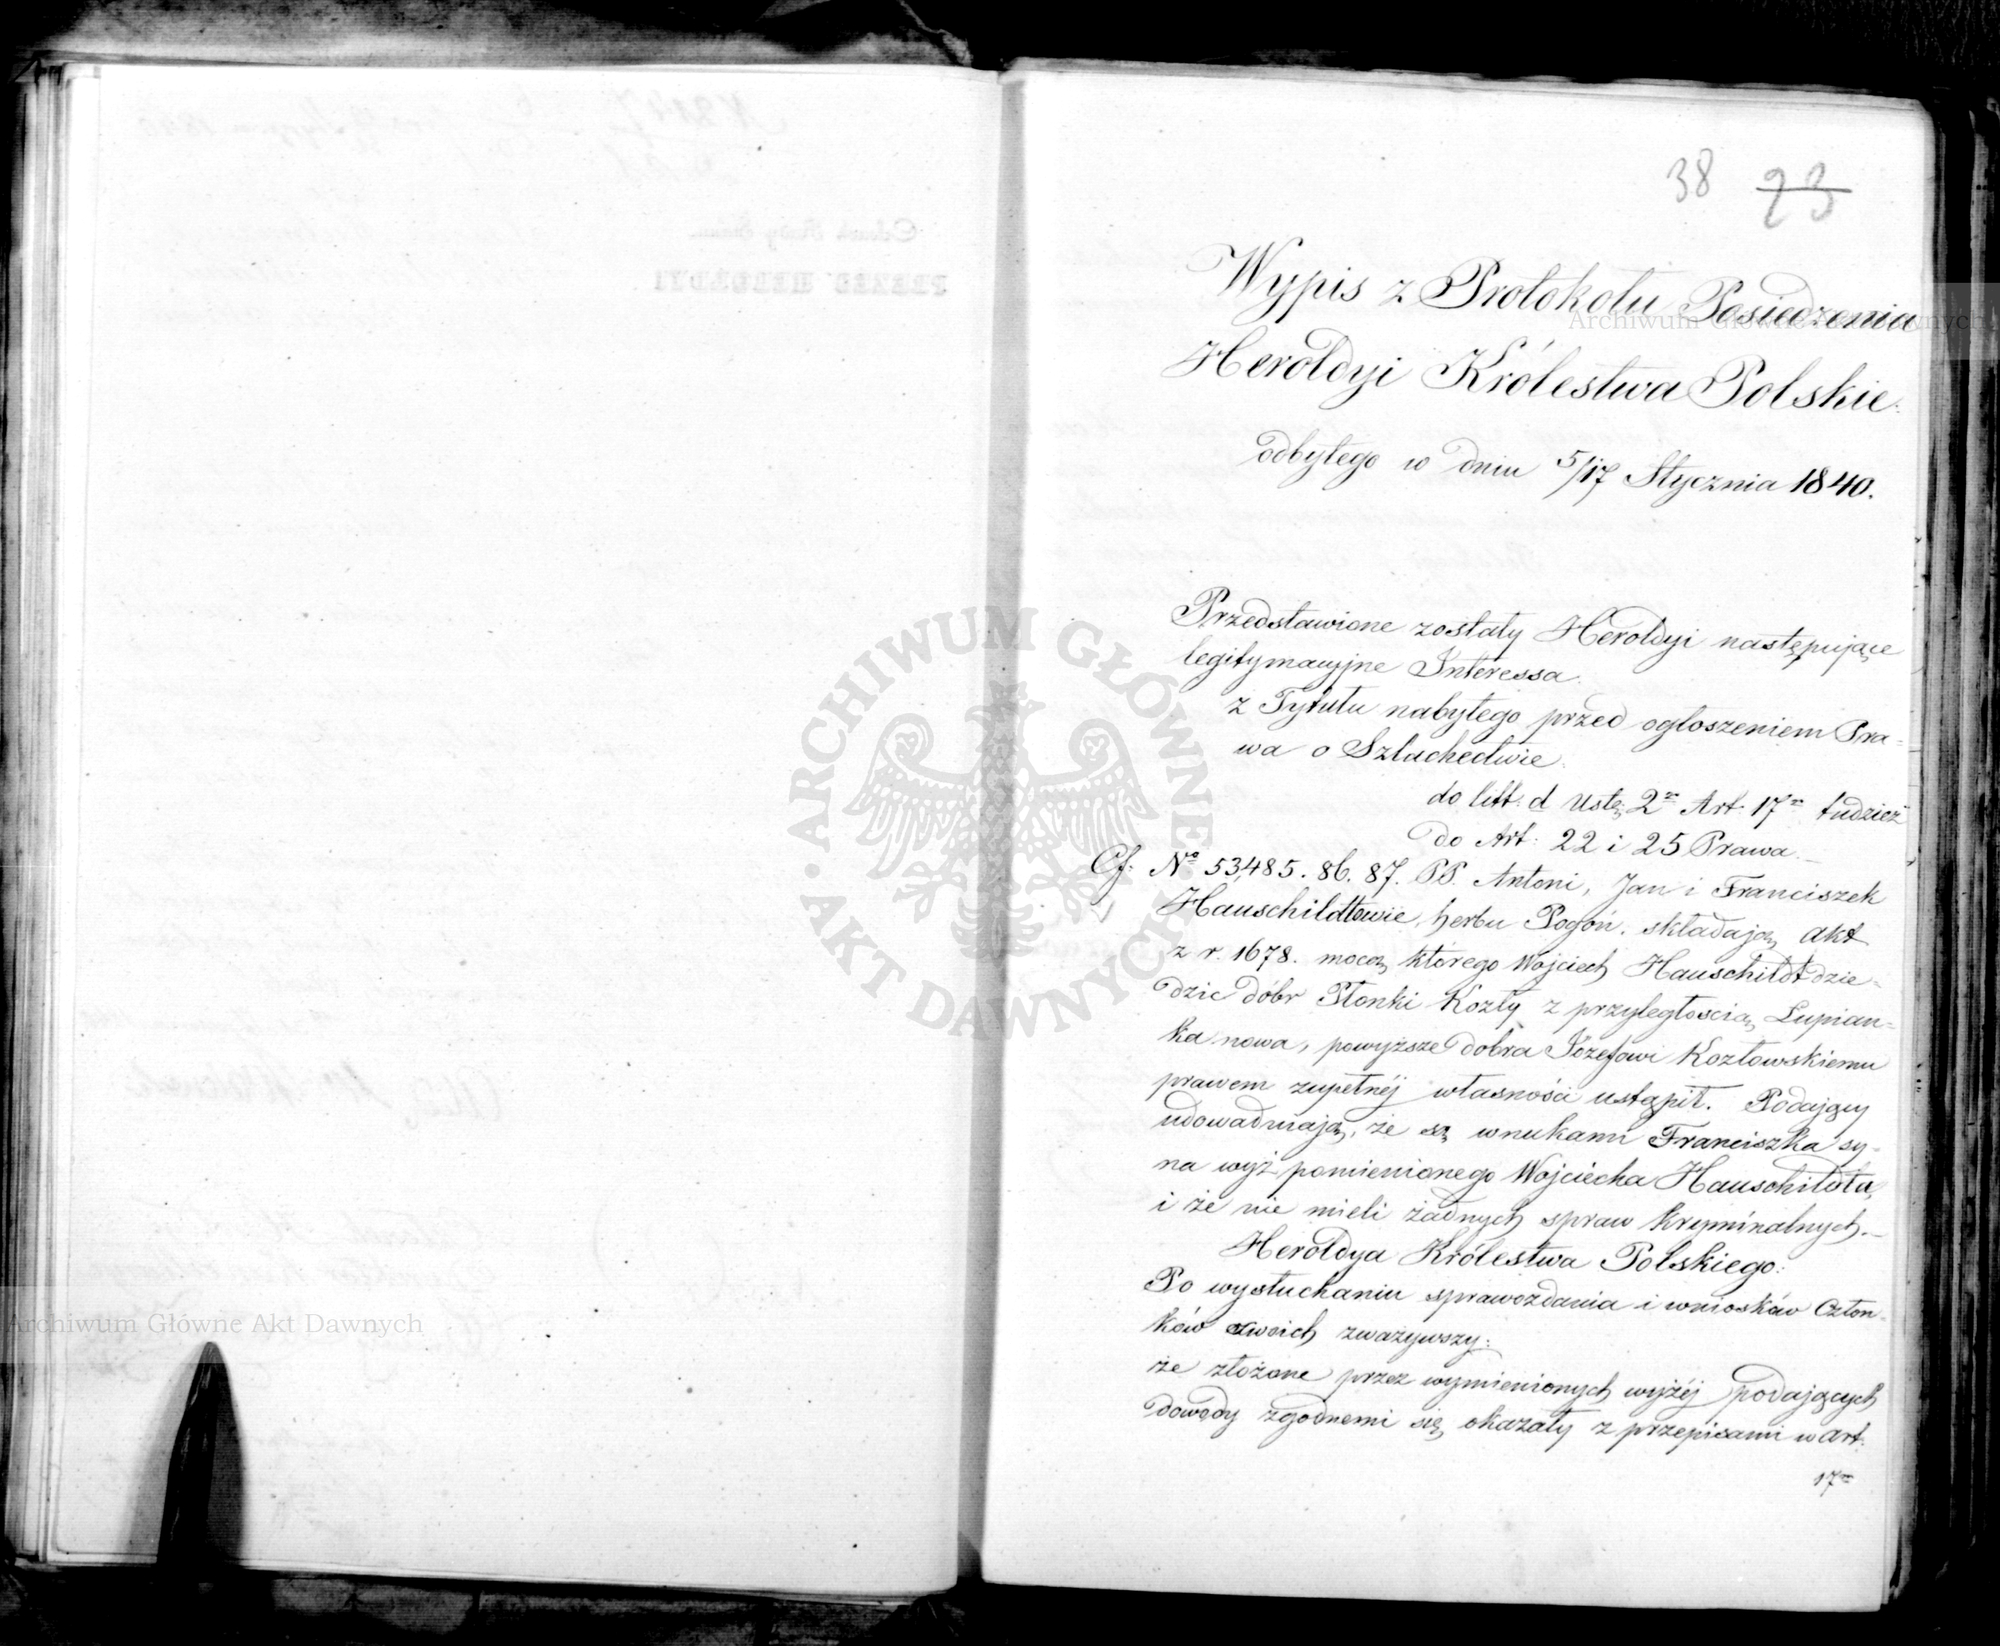 38 23
Wypis z Protokołu Posiedzenia
Heroldyi Królestwa Polskie:
odbytego w dniu 5/17 Stycznia 1840.
Przedstawione zostały Heroldyi następujące
legitymacyjne Interessa.
z Tytułu nabytego przed ogłoszeniem Pra=
wa o Szlachectwie.
do litt. d Ustę. 2° Art. 17° tudzież
do Art: 22 i 25 Prawa.
Cf: N° 53,485. 86. 87. PP. Antoni, Jan i Franciszek
Hauschildtowie, herbu Pogoń, składają akt
z r. 1678. mocą którego Wojciech Hauschildt dzie=
dzic dóbr Płonki Kozły z przyległością Łupian=
ka nowa, powyższe dobra Józefowi Kozłowskiemu
prawem zupełnéj własności ustąpił. Podający
udowadniają, że są wnukami Franciszka sy=
na wyż pomienionego Wojciecha Hauschildta,
i że nie mieli żadnych spraw kryminalnych.
Heroldya Królestwa Polskiego:
Po wysłuchaniu sprawozdania i wniosków Człon=
ków swoich zważywszy:
że złożone przez wymienionych wyżéj podających
dowody zgodnemi się okazały z przepisami w art:
17°
ARCHIWUM GŁÓWNE AKT DAWNYCH
Archiwum Główne Akt Dawnych
Archiwum Główne Akt Dawnych